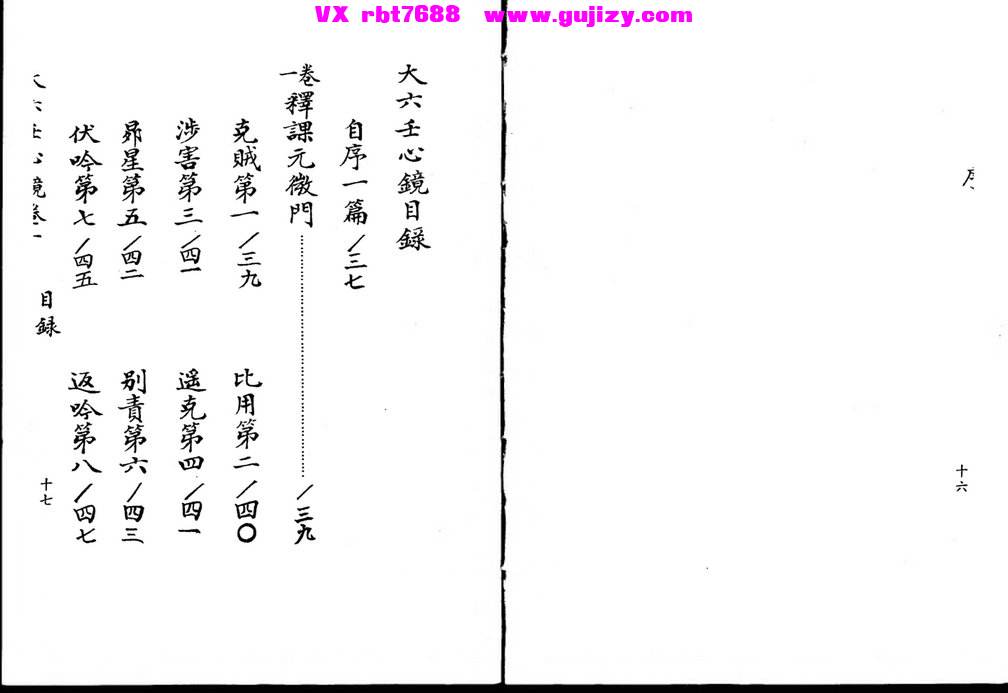 VX rbt7688 www.gujizy.com
序
十六
大六壬心鏡目錄
自序一篇/三七
卷一 釋課元微門……/三九
克賊第一/三九
比用第二/四〇
涉害第三/四一
遥克第四/四一
昴星第五/四二
别責第六/四三
伏吟第七/四五
返吟第八/四七
大六壬心鏡卷一 目録 十七